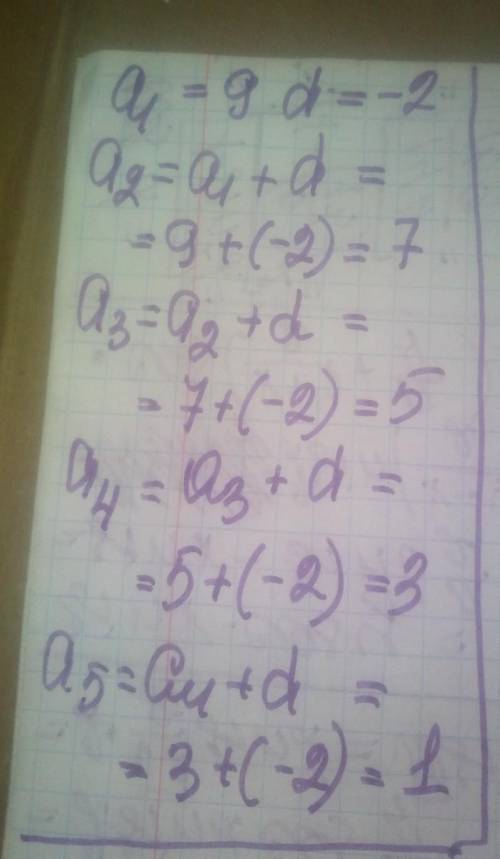 a₁ = 9 d = -2
a₂ = a₁ + d =
= 9 + (-2) = 7
a₃ = a₂ + d =
= 7 + (-2) = 5
a₄ = a₃ + d =
= 5 + (-2) = 3
a₅ = a₄ + d =
= 3 + (-2) = 1